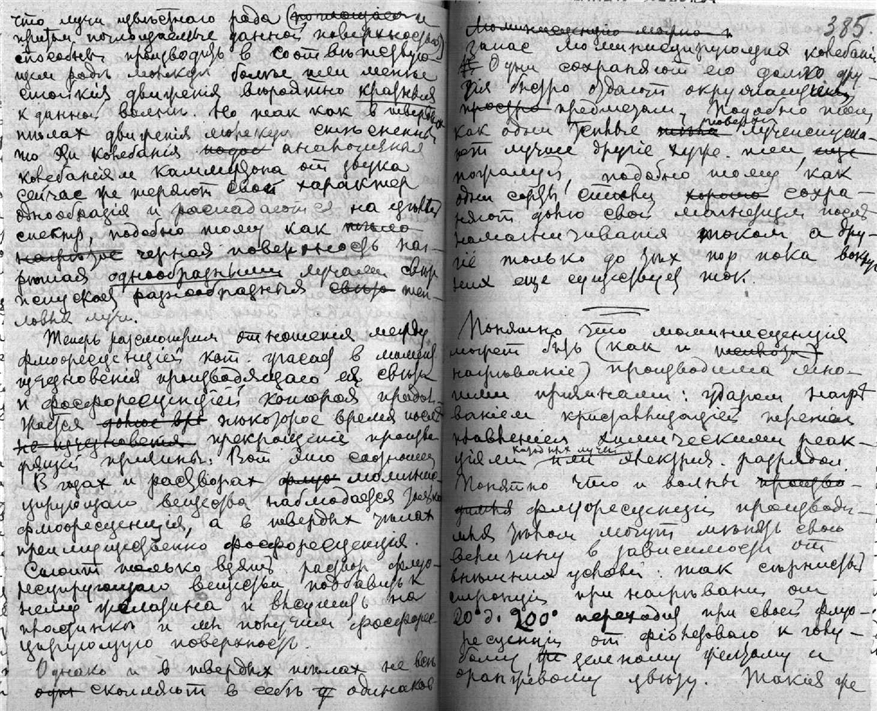 что лучи извѣстнаго рода (поглощаем и
притом поглощаемые данной поверхностью)
способны производить в соотвѣтствую-
щем родѣ молекул болѣе или менѣе
стойкія движенія вѣроятно кратныя
к данной волнѣ. Но так как в твердых
тѣлах движенія молекул стѣснены
то эти колебанія аналогичныя
колебаніям камертона от звука
сейчас же теряют свой характер
однообразія и распадаются на цѣлый
спектр, подобно тому как тѣло
нагрѣтое черная поверхность наг-
рѣтая однообразными лучами свѣта
испускает разнообразныя свѣто теп-
ловые лучи.
Теперь разсмотрим отношенія между
флюоресценціей кот. угасает в момент
изчезновенія производящаго ея свѣта
и фосфоресценціей которая продол-
жается нѣкоторое время послѣ
не изчезновенія прекращенія произво-
дящей причины. Вот
В газах и растворах флюо люминис-
цирующаго вещества наблюдается
флюоресценція, а в твердых тѣлах
преимущественно фосфоресценция.
Стоит только взять раствор флюо-
ресцирующаго вещества подбавить к
нему желатина и высушить на
пластинки и мы получим фосфорес-
цирующую поверхность.
Однако и в твердых тѣлах не всѣ
в себѣ одинаков
385.
Люминисценцию можно
запас люминисцирующих колебаній
Одни сохраняют его долго дру-
гія быстро отдают окружающим
просто предметам. Подобно тому
как одни тѣлые поверхн. лучеиспуска-
ют лучше другіе хуже. или, еще
подобно тому как
одни сорты стали хорошо сохра-
няют долго свой магнетизм послѣ
намагничиванія током а дру-
гіе только до тѣх пор пока вокруг
них еще существует ток.
Понятно что люминисценція
может быть (как и
нагрѣваніе) производима мно-
гими причинами: ударом нагрѣ-
ваніем кристаллизаціей
химическими реак-
ціями катодных лучей или электрич. разрядом.
Понятно что и волны произво-
димыя флюоресценціи производи-
мыя мѣнять свою
величину в зависимости от
внѣшних условій: так сѣрнистый
стронцій при нагрѣваніи от
20° д. 200° переходит при своей флюо-
ресценціи от фіолетоваго к голу-
бому, зеленому желтому и
оранжевому цвѣту. Такія же